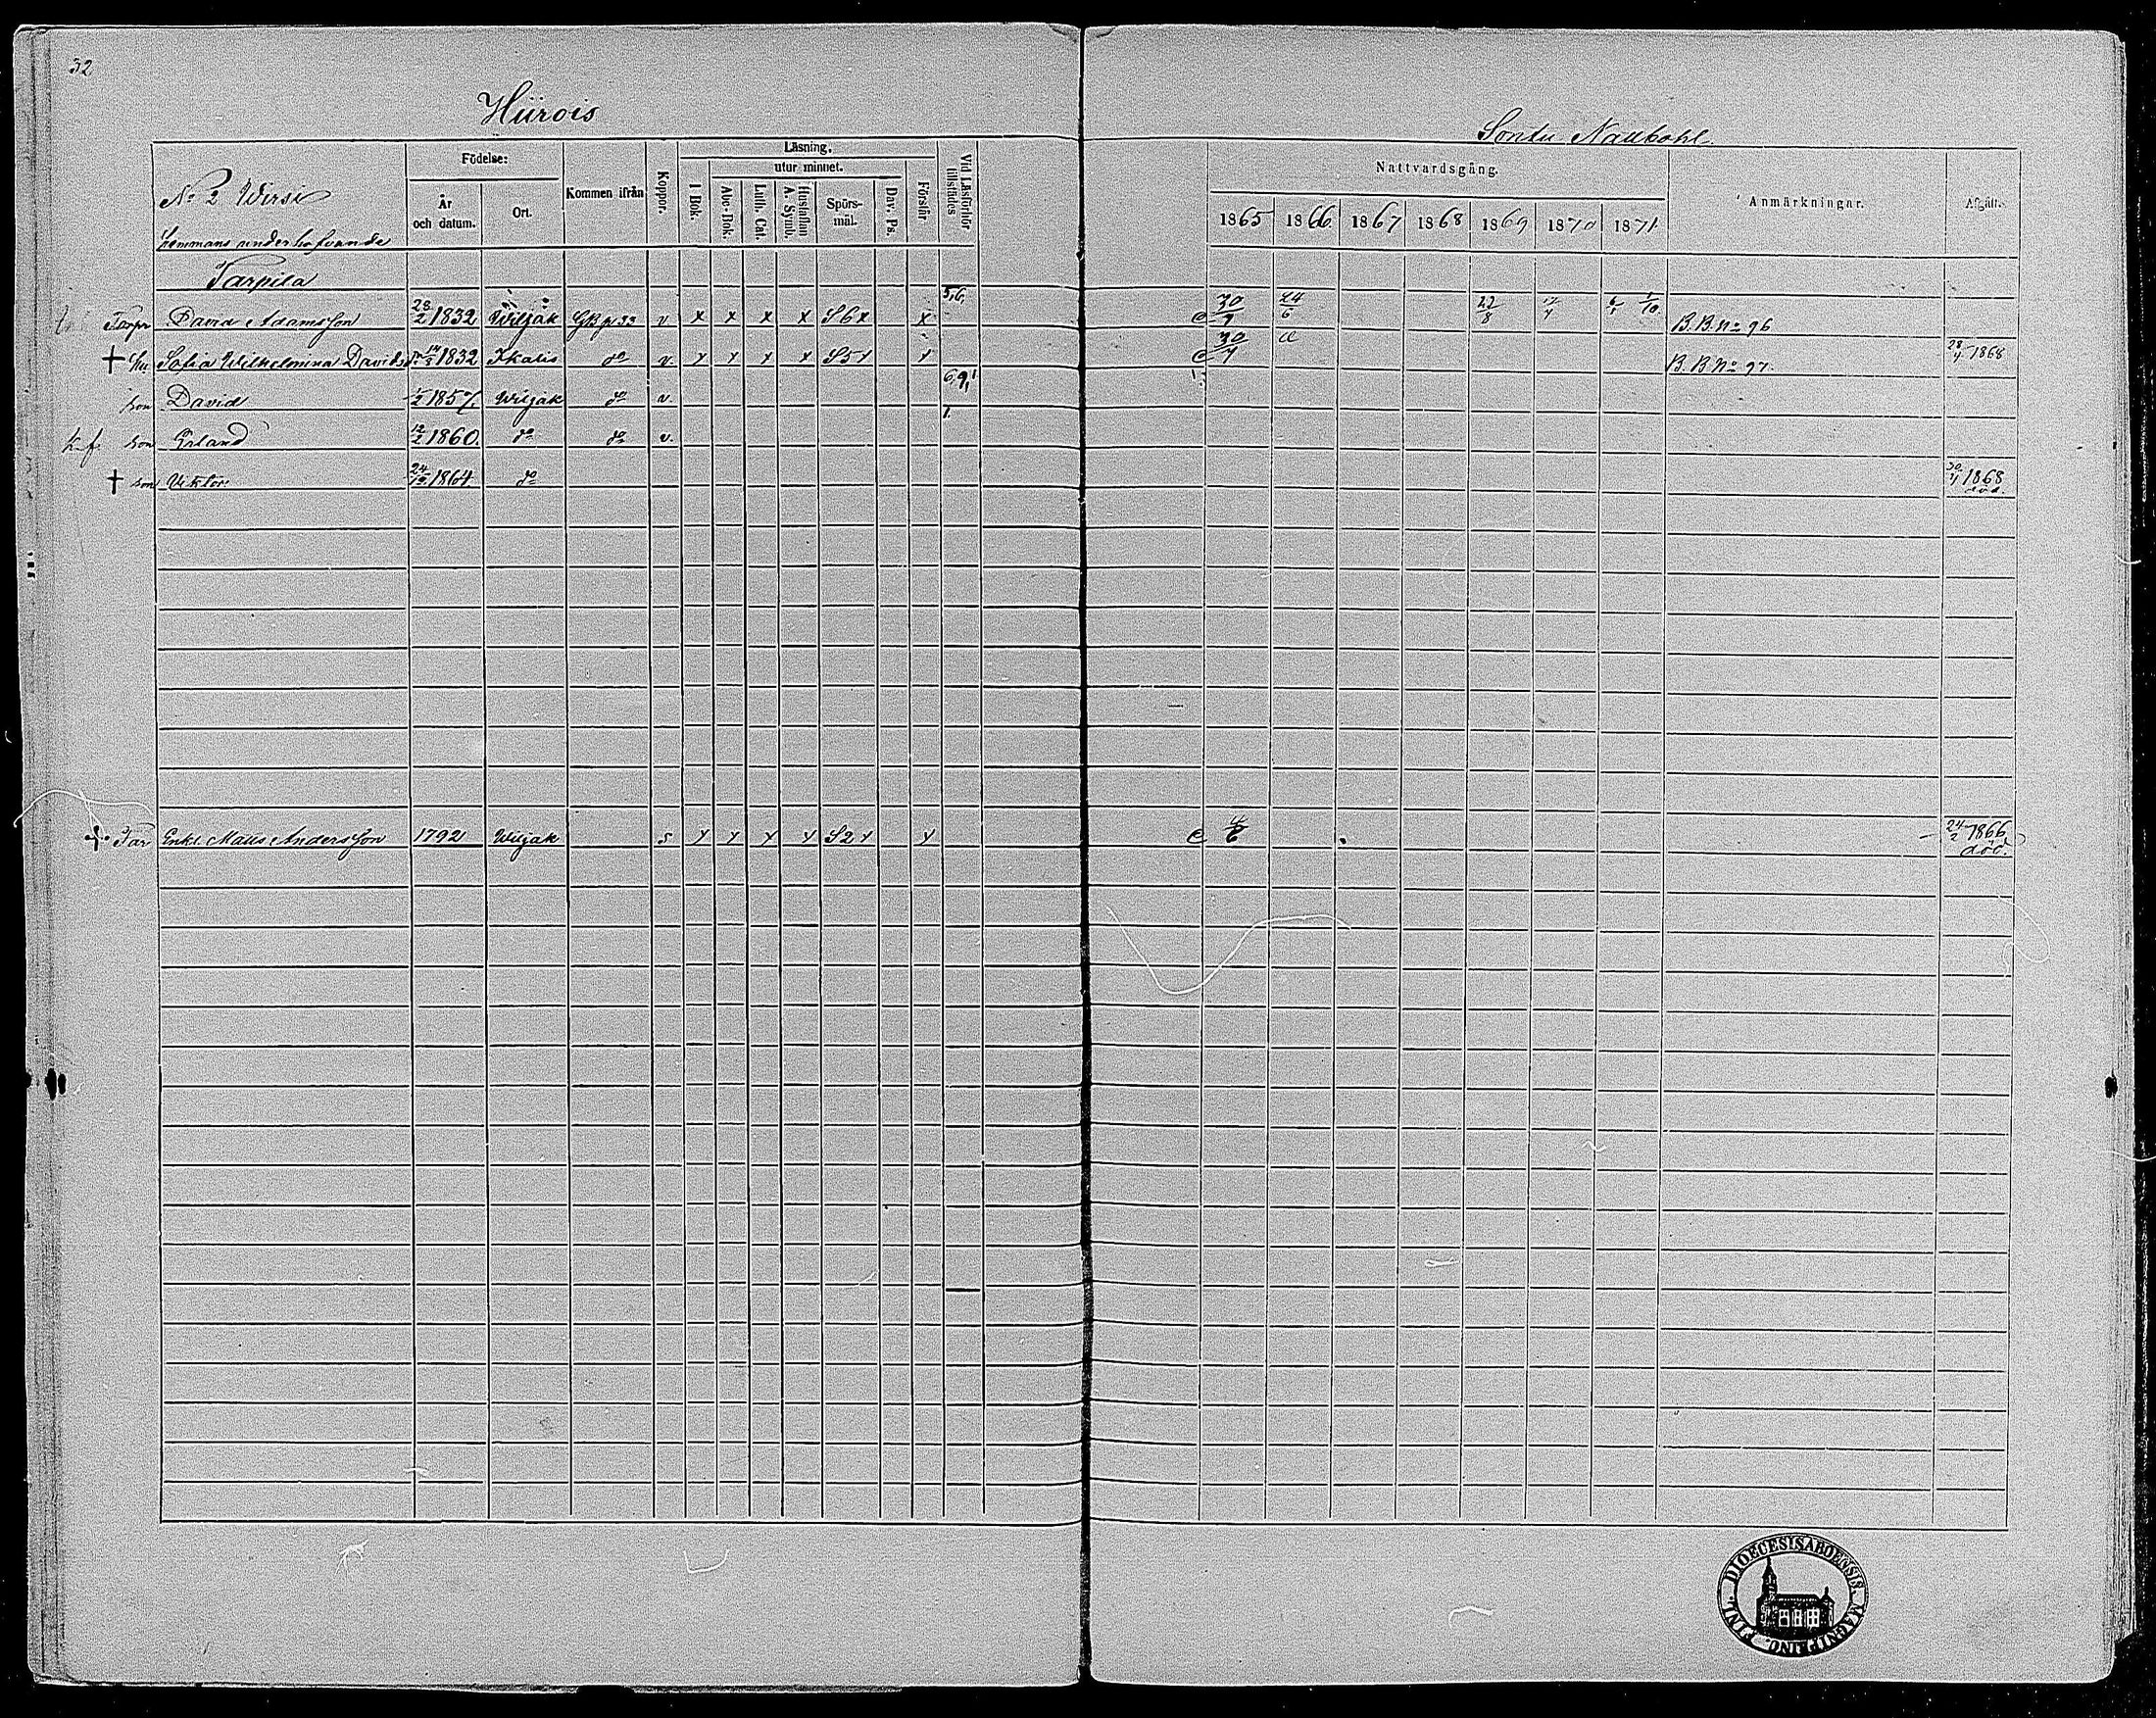 32
Hiirois
Sontu Naubohl.
No 2 Wirsi
hemmans underhafvande
Tarpila
Födelse:
År och datum.
Ort.
Kommen ifrån
Koppor.
Läsning,
utur minnet.
I Bok.
Abc-Bok.
Luth. Cat.
Hustaflan A. Symb.
Spörs-mål.
Dav. Ps.
Förstår
Vid Läsförhör tillstädes
Nattvardsgång.
1865 1866 1867 1868 1869 1870 1871
Anmärkningar.
Afgått.
Torpr David Adamsson 28/2 1832 Wiljak GB p 33 v. x x x x S 6 x x 5,6, e 30/7 24/6 22/8 B. B. No 96
† Hu Sofia Wilhelmina Davids 1832 Kkalis do v. y y y y S 5 y y e 30/7 B. B. No 97. 1868
son David 1857 Wiljak do v. 6,9,
k.f. son Erland 12/2 1860. do do v. 1.
† son Viktor 24/12 1864 do 1868 död.
Enkl. Matts Andersson 1792 Wiljak s y y y y S 2 y y e 24/2 1866 död.
DIOECESIS ABOENSIS. MAGNI PRINC. FINL.